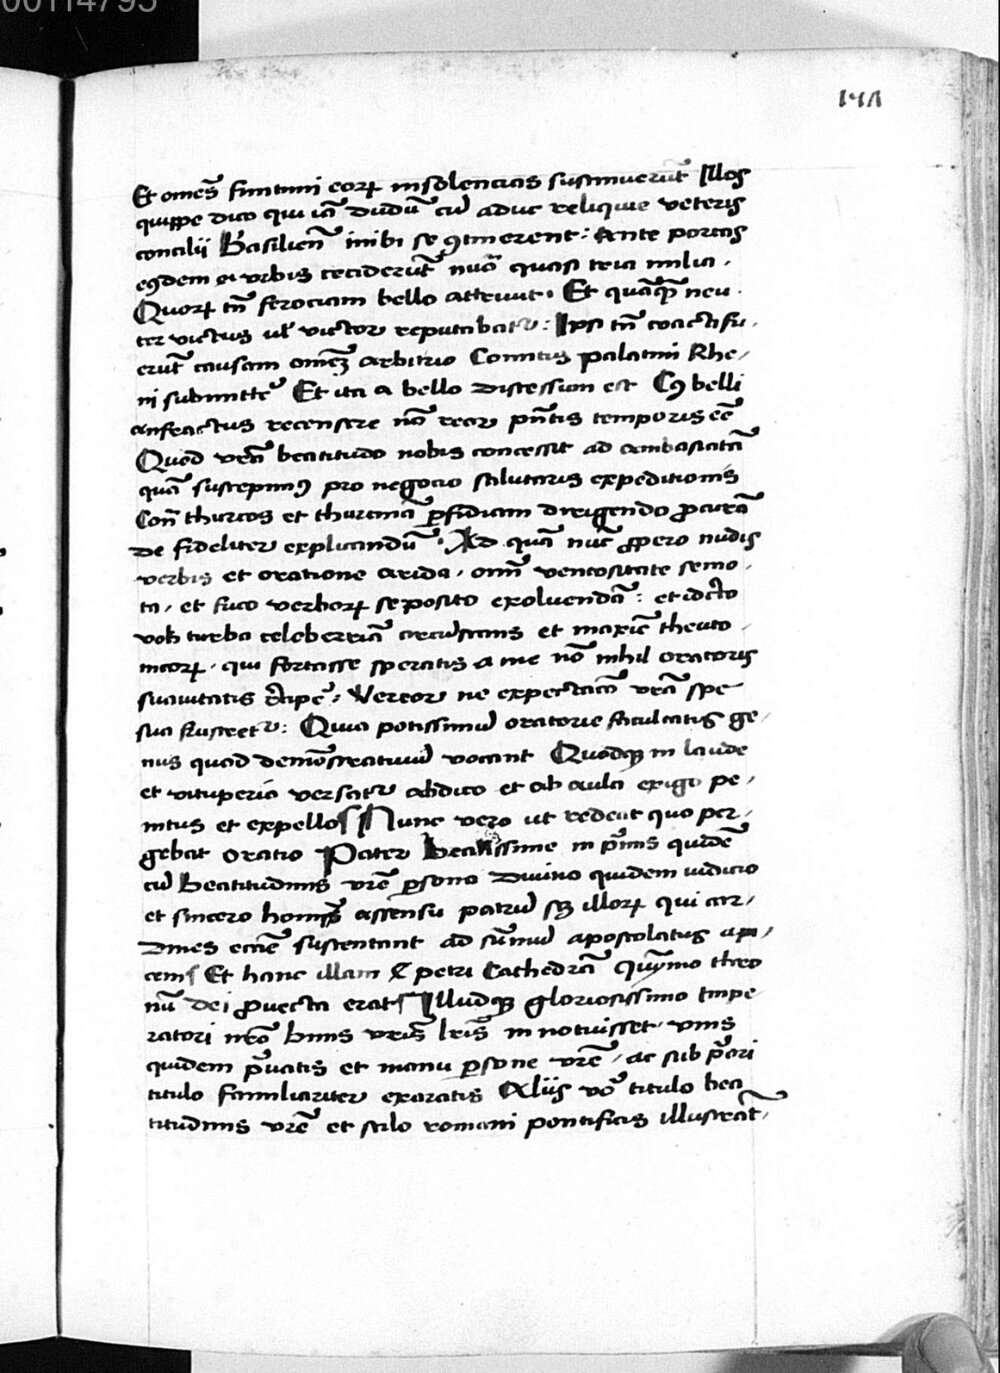 00114795
Et omēs finitimi eorꝝ insolencias sustinuerūt Illos
quippe dico qui iā dudū cū aduc reliquie veteris
concilii Basilien̄ inibi se ꝯtinerent: Ante portas
eꝯdem vrbis ceciderūt nūo quasi tria milia.
Quorꝝ tn̄ ferociam bello attriuit. Et quāqꝫ neu
ter victus ul̄ victor reputabatr: Ipsi tn̄ coacti fu
erūt causam omēꝫ arbitrio Comitis palatini Rhe
ni submitte᷑ Et ita a bello discessum est Cꝯ belli
anfractus recensere nō reor pn̄tis temporis eē
Quod vrā beatitudo nobis concessit ad ambasiatā
quā suscepimꝯ pro negocio salutaris expeditionis
Con̄ thurcos et thurcinā ꝑfidiam dirigendo ꝓcurā
de fideliter explicandū. Ad quā nūc ꝓpero nudis
verbis et oratione arida. omī ventositate semo
ta. et fuco verborꝝ seposito exoluendā: et idcirco
vob̄ turba celeberriā circūstans et maxie theuto
nicorꝝ. qui fortasse speratis a me nō nihil oratoris
suauitatis ꝑcipe᷑: Vereor ne expectacō vrā spe
sua frustretr: Quia potissimū oratorie facultatis ge
nus quod demōstratiuū vocant Quodqꝫ in laude
et vituperio versatr abdico et ab aula exigo pe
nitus et expello Nunc vero ut redeat quo per
gebat oratio Pater beatissime in pͥmis quidē
cū Beatitudinis vrē ꝑsona Diuino quidem iudicio
et sincero hominū assensu patrū sꝫ illorꝝ qui car
dines ecc̄ie sustentant ad sūmū apostolatus api
cem Et hanc illam petri Cathedrā quīymo thro
nū dei ꝓuecta erat Illudqꝫ gloriosissimo Impe
ratori nr̄o binis vris̄ lris̄ innotuisset. vnis
quidem pͥuatis et manu ꝑsone vrē. ac sub pͥori
titulo familiariter exaratis Aliis vō titulo bea
titudinis vrē et stilo romani pontificis illustrat̄